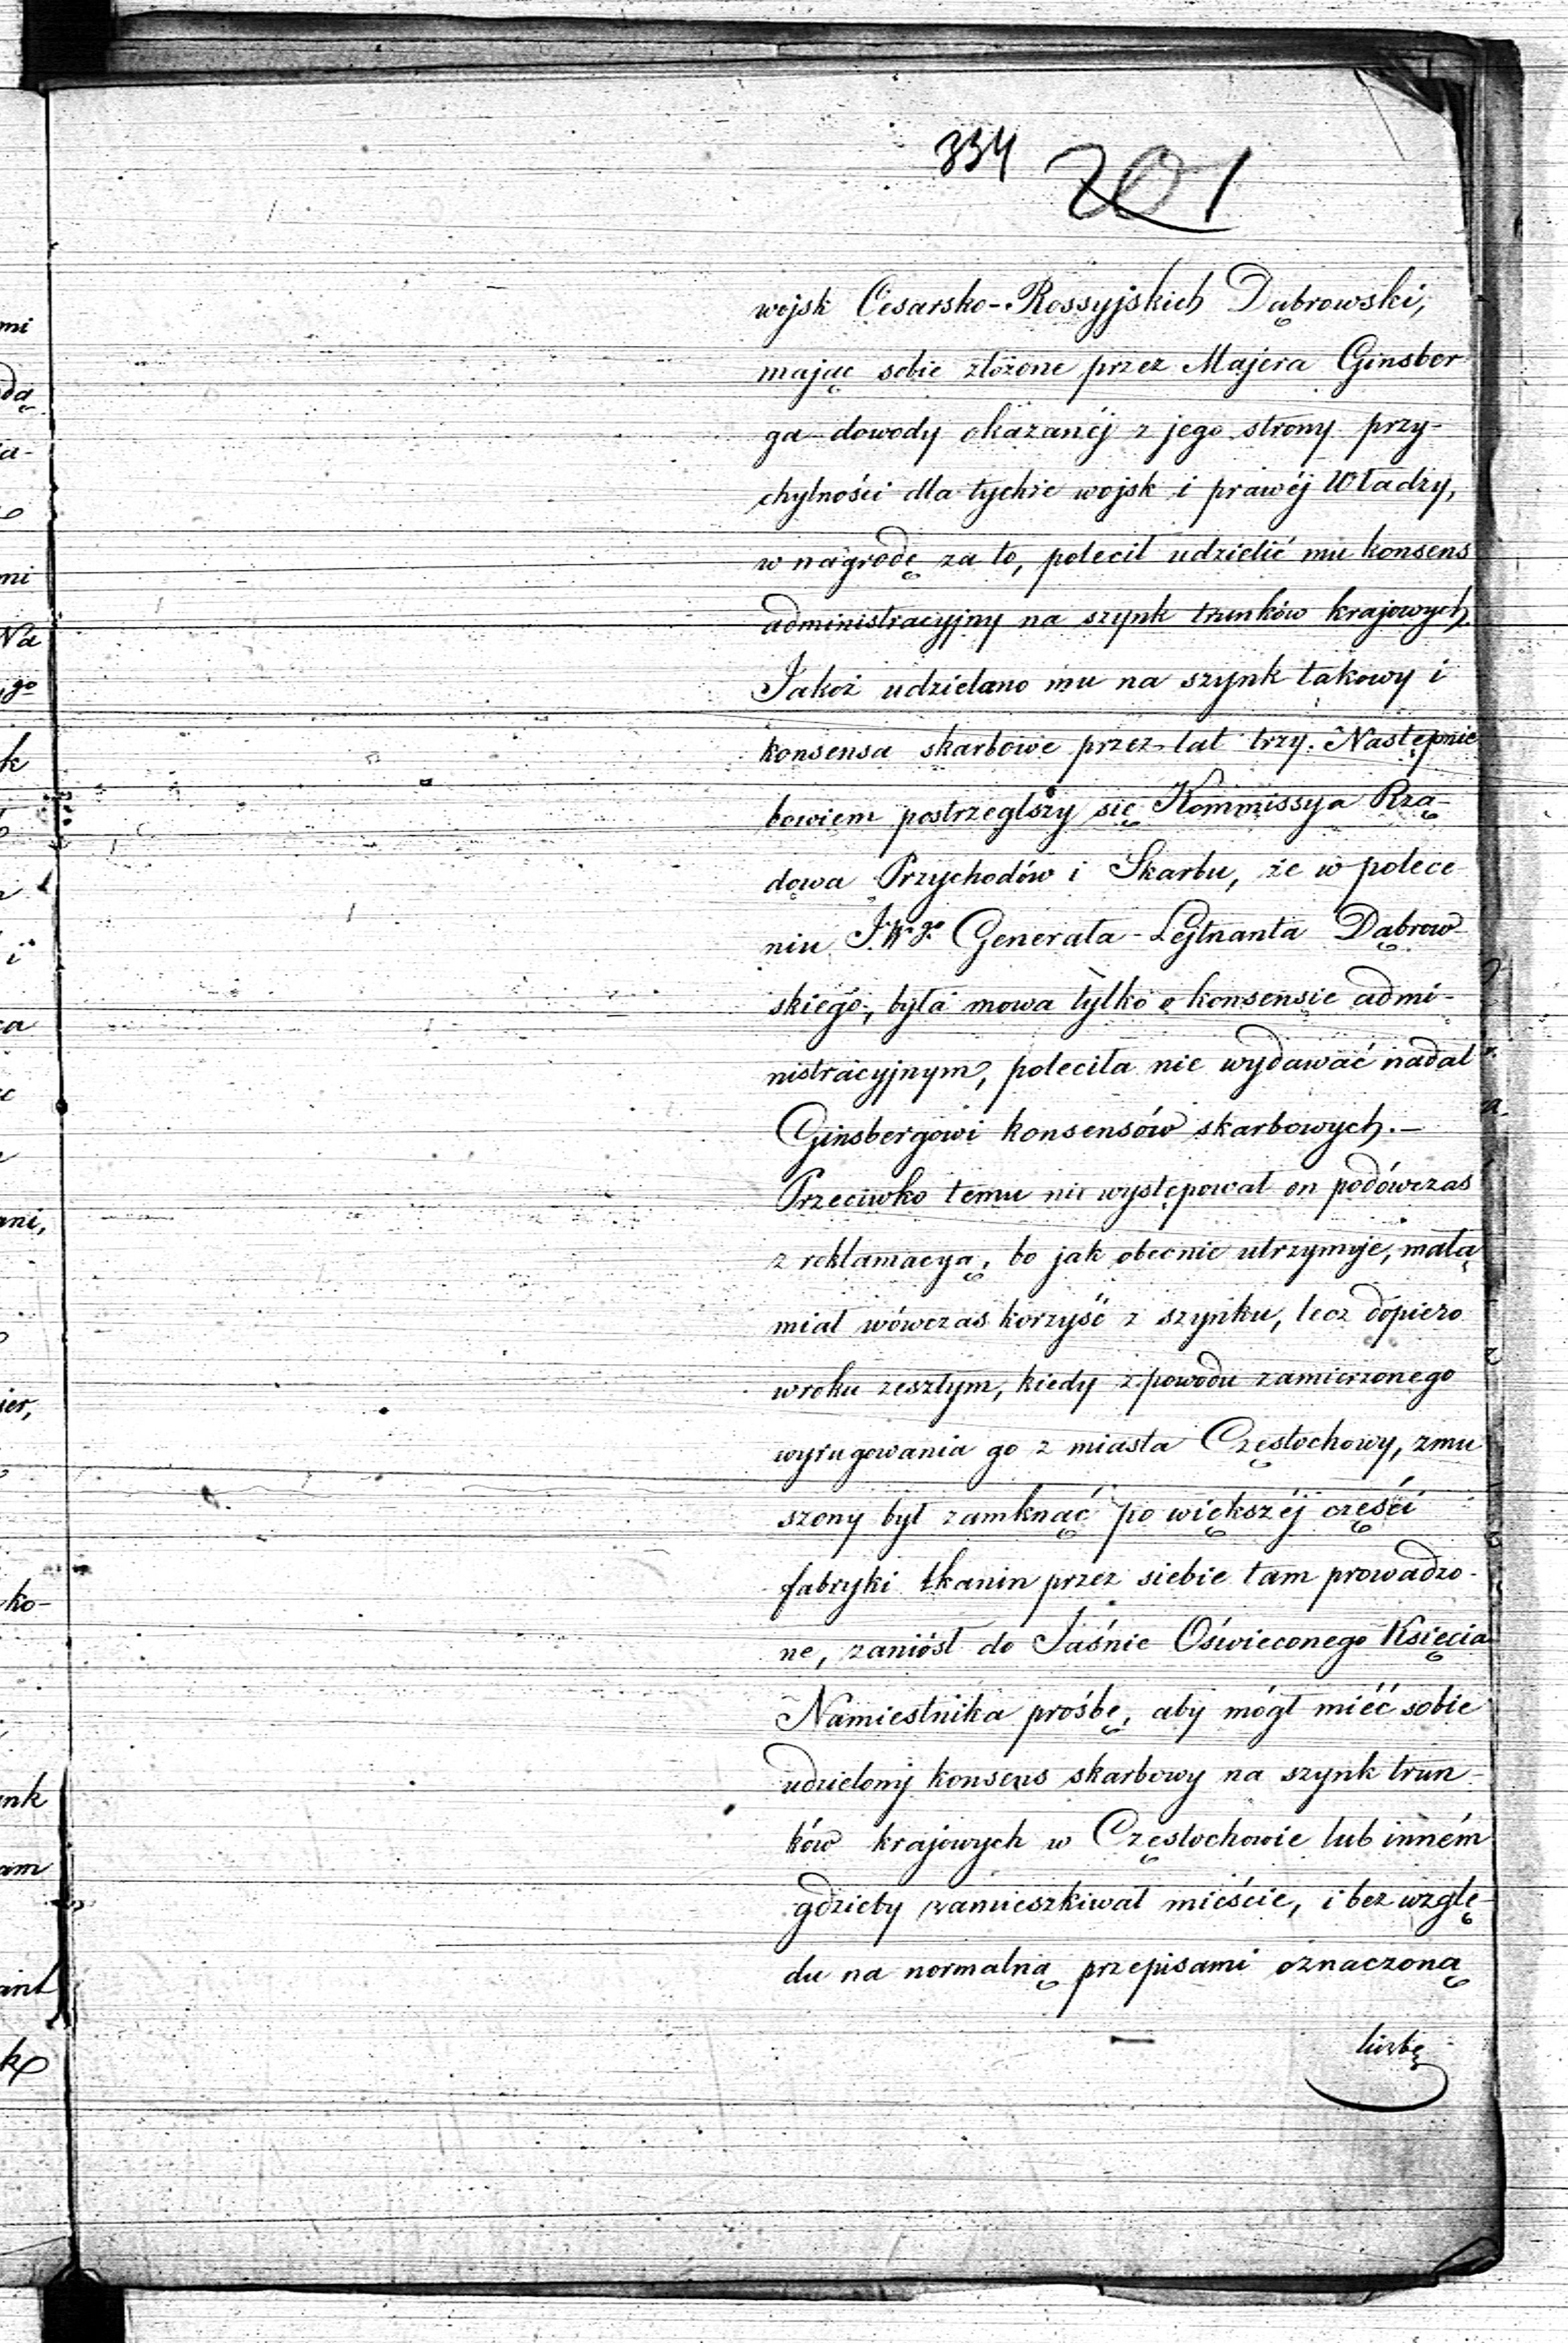 334 201
wojsk Cesarsko-Rossyjskich Dąbrowski,
mając sobie złożone przez Majera Ginsber
ga dowody okazanéj z jego strony przy-
chylności dla tychże wojsk i prawéj Władzy,
w nagrodę za to, polecił udzielić mu konsens
administracyjny na szynk trunków krajowych.
Jakoż udzielano mu na szynk takowy i
konsensa skarbowe przez lat trzy. Następnie
bowiem postrzegłszy się Kommissya Rzą-
dowa Przychodów i Skarbu, że w polece
niu J.W.go Generała-Lejtnanta Dąbrow
skiego, była mowa tylko o konsensie admi-
nistracyjnym, poleciła nie wydawać nadal
Ginsbergowi konsensów skarbowych.-
Przeciwko temu nie występował on podówczas
z reklamacyą, bo jak obecnie utrzymuje, małą
miał wówczas korzyść z szynku, lecz dopiero
w roku zeszłym, kiedy z powodu zamierzonego
wyrugowania go z miasta Częstochowy, zmu
szony był zamknąć po większéj części
fabryki tkanin przez siebie tam prowadzo-
ne, zaniósł do Jaśnie Oświeconego Księcia
Namiestnika prośbę, aby mógł miéć sobie
udzielony konsens skarbowy na szynk trun-
ków krajowych w Częstochowie lub inném
gdzieby zamieszkiwał mieście, i bez wzglę-
du na normalną przepisami oznaczoną
liczbę